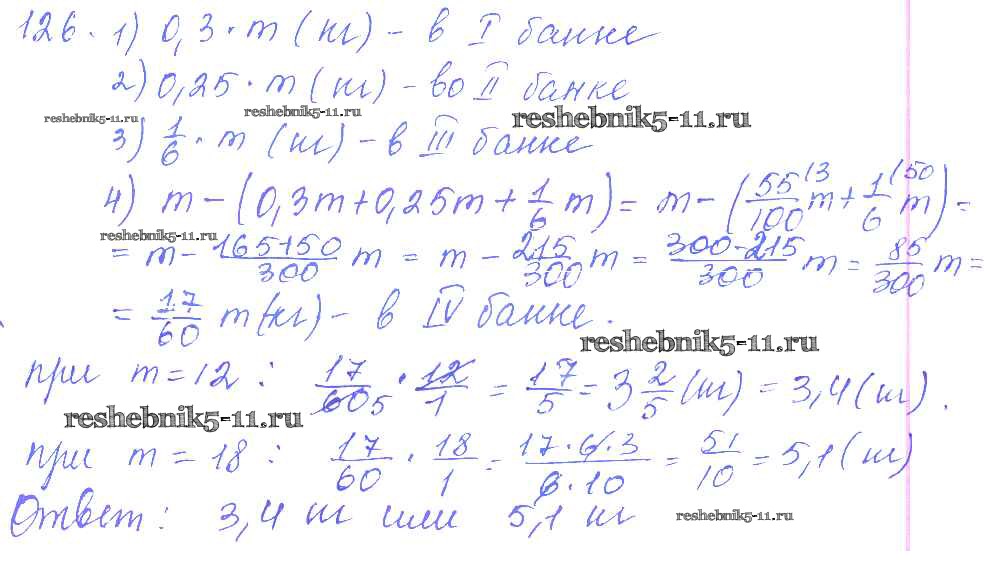 126. 1) 0,3 · m (кг) – в I банке
2) 0,25 · m (кг) – во II банке
reshebnik5-11.ru reshebnik5-11.ru reshebnik5-11.ru
3) 1/6 · m (кг) – в III банке
4) m – (0,3m + 0,25m + 1/6 m) = m – (55/100 (3 m + 1/6 (50 m) =
reshebnik5-11.ru
= m – 165+150/300 m = m – 215/300 m = 300-215/300 m = 85/300 m =
= 17/60 m (кг) – в IV банке.
reshebnik5-11.ru
при m = 12 : 17/60 5 · 12/1 = 17/5 = 3 2/5 (кг) = 3,4 (кг).
reshebnik5-11.ru
при m = 18 : 17/60 · 18/1 = 17·6·3/6·10 = 51/10 = 5,1 (кг)
Ответ: 3,4 кг или 5,1 кг
reshebnik5-11.ru